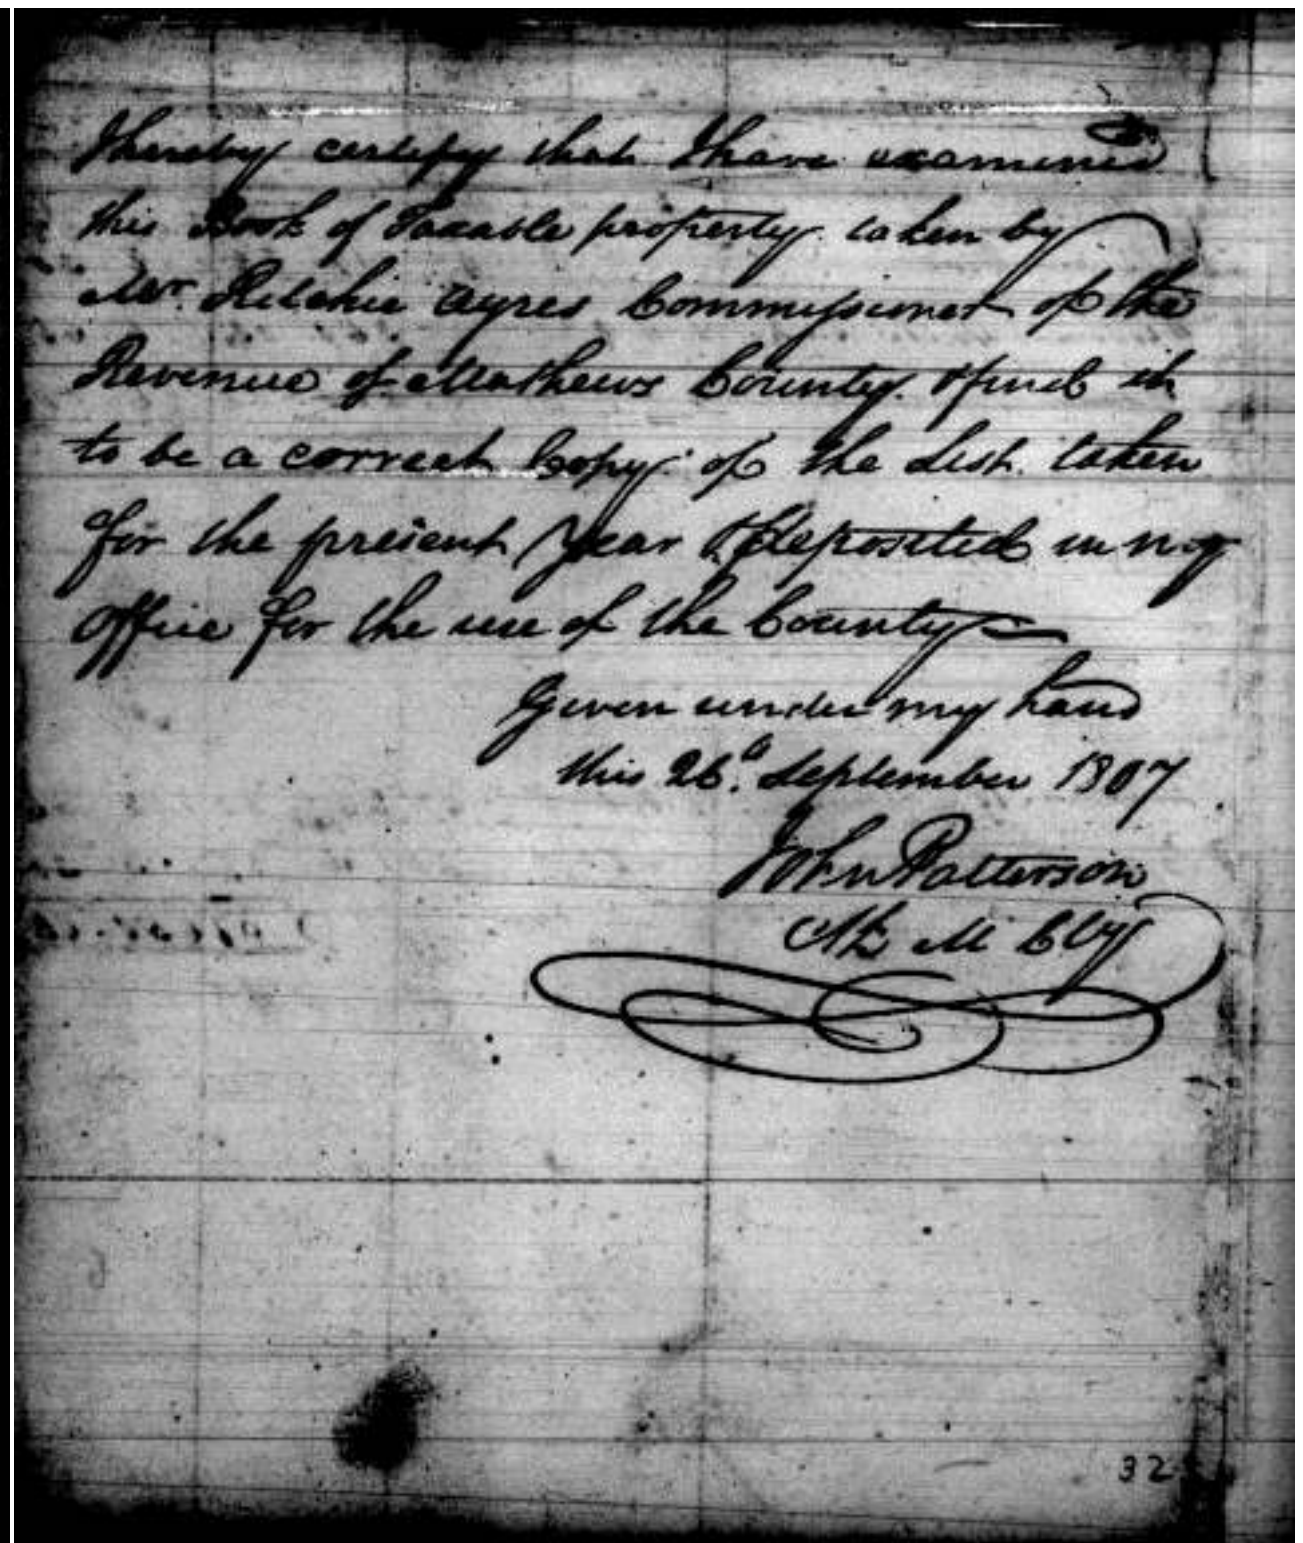 I hereby certify that I have examined
this Book of Taxable property taken by
Mr. Ritchie Ayres Commissioner of the
Revenue of Mathews County & find it
to be a correct Copy of the List taken
for the present Year & deposited in my
office for the use of the County
Given under my hand
this 26.th September 1807
John Patterson
M Cty
32